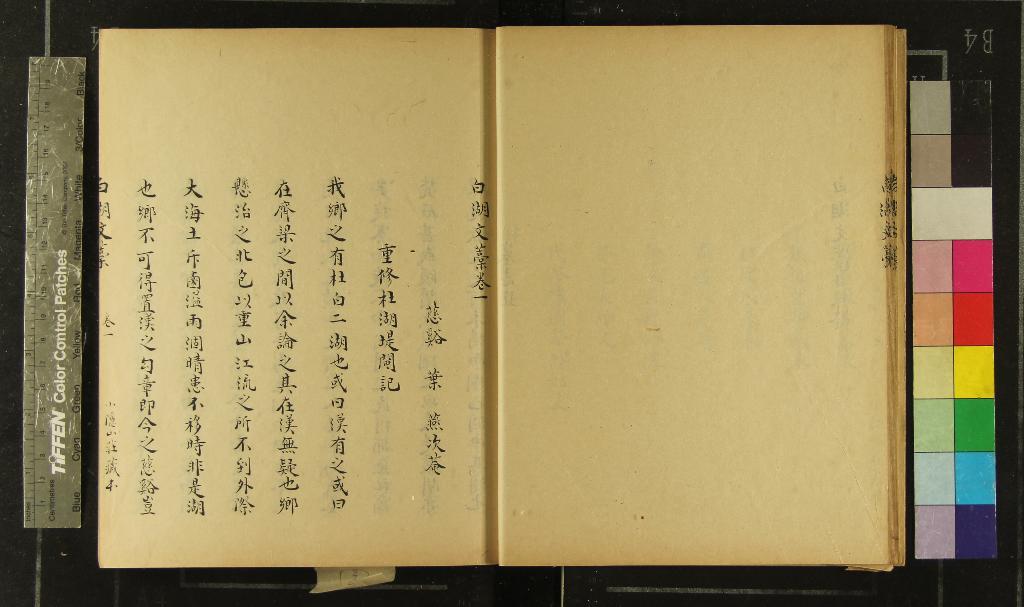 白湖文藁卷一
慈谿 葉 燕次菴
重修杜湖堤閘記
我鄉之有杜白二湖也或曰漢有之或曰
在齊梁之間以余論之其在漢無疑也鄉
懸治之北色以重山江流之所不到外際
大海土斥鹵溢雨涸晴患不移時非是湖
也鄉不可得置漢之句章即今之慈谿豈
白湖文藁 卷一 小隱山莊藏本
TIFFEN Color Control Patches
Centimetres
Blue Cyan Green Yellow Red Magenta White 3/Color Black
B4